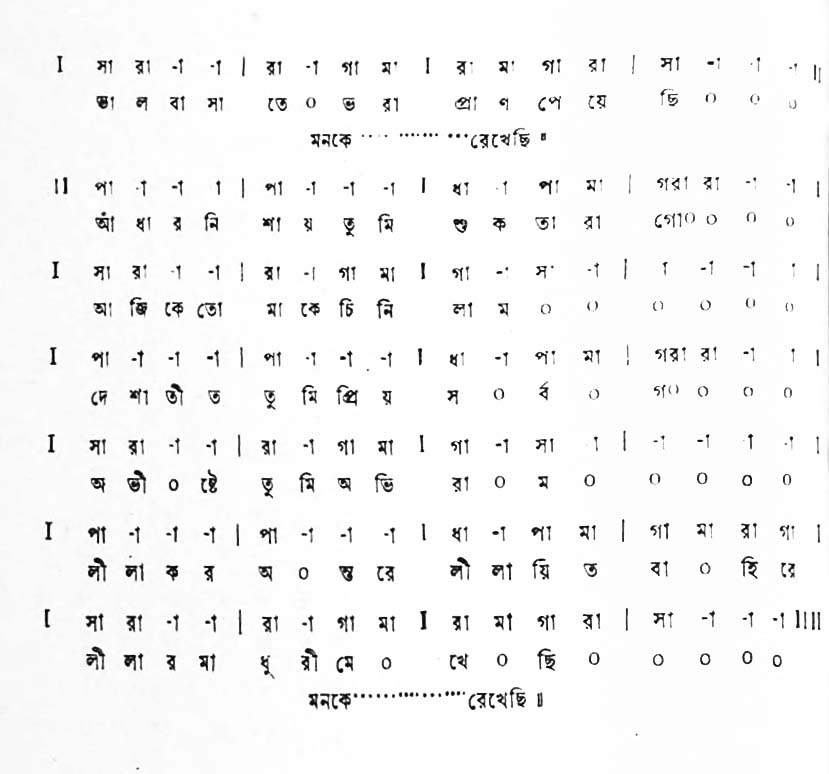 I সা রা -া -া | রা -া গা মা I রা মা গা রা | সা -া -া -া II
ভা ল বা সা তে ০ ভ রা প্রা ণ পে য়ে ছি ০ ০ ০
মনকে ···· ······· ···রেখেছি ॥
II পা -া -া া | পা -া -া -া I ধা -া পা মা | গরা রা -া -া |
আঁ ধা র নি শা য় তু মি শু ক তা রা গো০ ০ ০ ০
I সা রা -া -া | রা -া গা মা I গা -া সা -া | া -া -া া |
আ জি কে তো মা কে চি নি লা ম ০ ০ ০ ০ ০ ০
I পা -া -া -া | পা -া -া -া I ধা -া পা মা | গরা রা -া া |
দে শা তী ত তু মি প্রি য় স ০ র্ব ০ গ০ ০ ০ ০
I সা রা -া -া | রা -া গা মা I গা -া সা -া | -া -া া -া |
অ ভী ০ ষ্টে তু মি অ ভি রা ০ ম ০ ০ ০ ০ ০
I পা -া -া -া | পা -া -া -া I ধা -া পা মা | গা মা রা গা |
লী লা ক র অ ০ ন্ত রে লী লা য়ি ত বা ০ হি রে
I সা রা -া -া | রা -া গা মা I রা মা গা রা | সা -া -া -া IIII
লী লা র মা ধু রী মে ০ খে ০ ছি ০ ০ ০ ০ ০
মনকে···················রেখেছি ॥